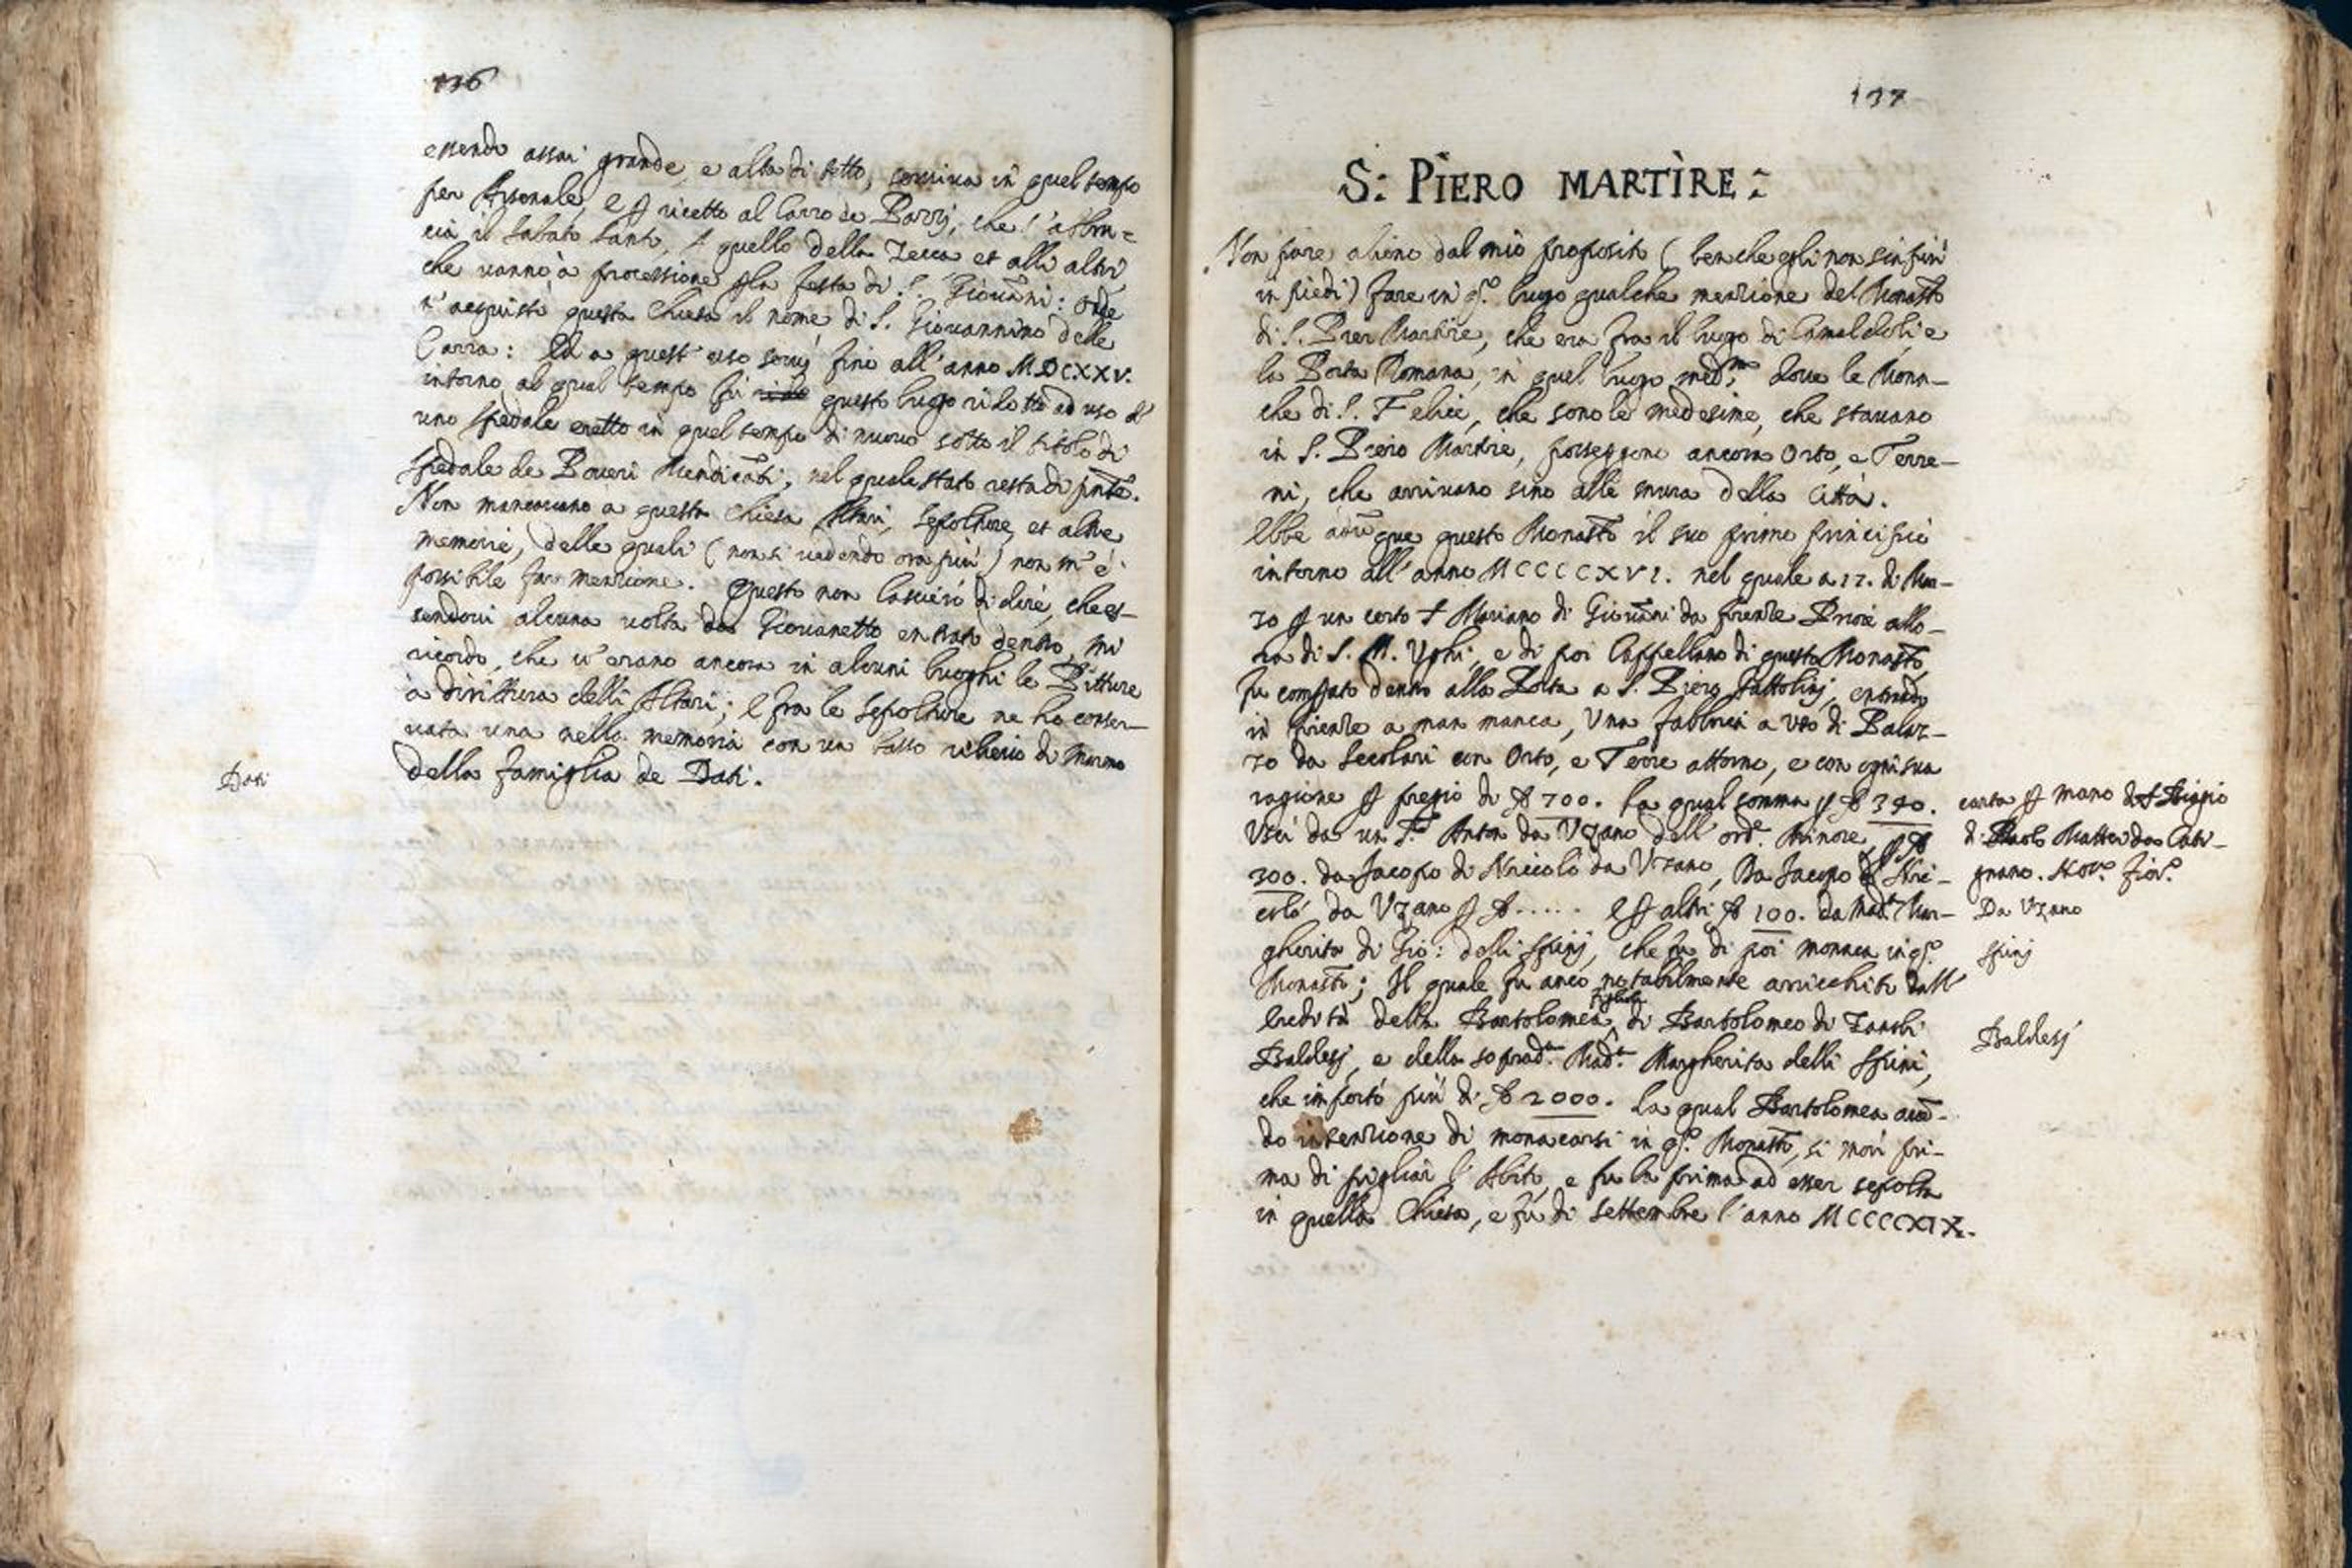 136
essendo assai grande, e alta di tetto, serviva in quel tempo
per Arsenale, e ꝑ ricetto al Carro de Pazzj, che s'abbru=
cia il Sabato Santo, e quello della Zecca et alli altri
che vanno à processione ꝑ la festa di S. Giovāni: onde
n'acquistò questa Chiesa il nome di S. Giovannino delle
Carra: Ed a quest'uso servì fino all'anno MDCXXV.
intorno al qual tempo fù questo luogo ridotto ad uso d'
uno spedale eretto in quel tempo di nuovo sotto il titolo di
Spedale de Poveri Mendicāti, nel quale stato resta di pnte.
Non mancavano a questa Chiesa Altari, Sepolture, et altre
memorie, delle quali (non si vedendo ora più) non m'è
possibile far menzione. Questo non lascierò di dire, che es-
sendovi alcuna volta da Giovanetto entrato dentro, mi
ricordo, che v'erano ancora in alcuni luoghi le Pitture
a dirittura delli Altari; e fra le Sepolture ne ho conser-
vata una nella memoria con un basso rilievo di marmo
della famiglia de Dati.
Dati
137
S: PIERO MARTIRE:
Non pare alieno dal mio proposito (benche egli non sia più
in piedi) fare in qs.o luogo qualche menzione del Monast.o
di S. Pier Martire, che era fra il luogo di Camaldoli, e
la Porta Romana, in quel luogo med.mo dove le Mona-
che di S. Felice, che sono le medesime, che stavano
in S. Piero Martire, posseggono ancora Orto, e Terre-
ni, che arrivano sino alle mura della Città.
Ebbe adūque questo Monast.o il suo primo principio
intorno all'anno MCCCCXVI. nel quale a 17. di Mar-
zo ꝑ un certo S Mariano di Giovāni da Firenze Priore allo-
ra di S. M. Vghi, e di poi Cappellano di questo Monast.o,
fu comprato dentro alla Porta a S. Piero Gattolinj, entrando
in Firenze a man manca, Una fabbrica a uso di Palaz-
zo da Secolari con Orto, e Terre attorno, e con ogni sua
ragione ꝑ pregio di ƒ 700. la qual somma ꝑ ƒ 340.
Uscì da un F. Anton da Vzano dell'ord.e Minore, ꝑ ƒ
300. da Jacopo di Niccolò da Vzano, Da Jacopo di Nic-
colò da Vzano ꝑ ƒ..... e ꝑ altri ƒ 100. da Mad.a Mar-
gherita di Gio: delli Spinj, che fu di poi monaca in qs.o
Monast.o; Il quale fu anco notabilmente arricchito dall'
Eredità della Bartolomea figliola di Bartolomeo di Zanobi
Baldesj, e della soprad.a Mad.a Margherita delli Spini,
che importò più di ƒ 2000. la qual Bartolomea avē-
do intenzione di monacarsi in qs.o Monast.o, si morì pri-
ma di pigliar l'Abito, e fu la prima ad esser sepolta
in quella Chiesa, e fù di Settembre l'anno MCCCCXIX.
carta ꝑ mano di S Biagio
Not.o Fior.o
Da Vzano
Spinj
Baldesj